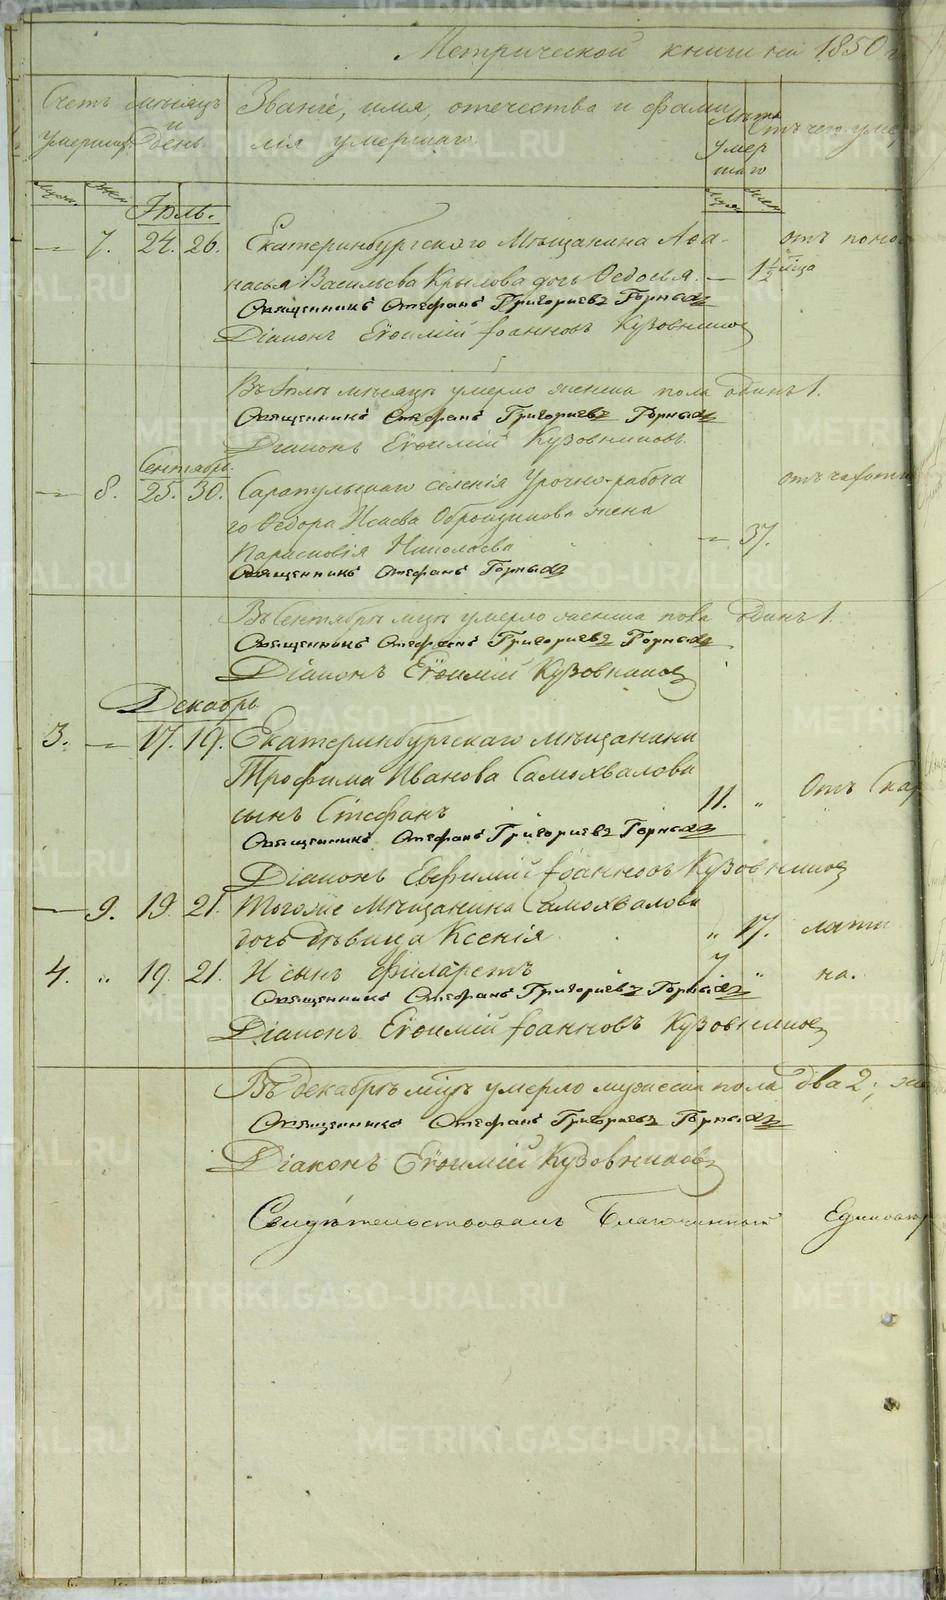 Метрической книги на 1850 г
Счетъ умершихъ
мѣсяцъ и день
Званіе, имя, отечество и фами
лія умершаго.
Лѣта умер шаго
Отъ чего умер
муж. жен муж жен
Іюль.
— 7. 24. 26. Екатеринбургскаго Мѣщанина Афа- отъ понос
насья Васильева Крылова дочь Федосья. — 1½ мца
Священникъ Стефанъ Григориевъ Горныхъ
Діаконъ Евѳимій Іоанновъ Кузовниковъ
Въ Іюлѣ мѣсяцѣ умерло женска пола одинъ 1.
Священникъ Стефанъ Григориевъ Горныхъ
Діаконъ Евѳимій Кузовниковъ.
Сентябрь.
— 8. 25. 30. Сарапульскаго селенія Урочно-рабоча отъ чахотки
го Федора Исаева жена
Парасковія Николаева — 37.
Священникъ Стефанъ Горныхъ
Въ Сентябрѣ мцѣ умерло женска пола одинъ 1.
Священникъ Стефанъ Григориевъ Горныхъ
Діаконъ Евѳимій Кузовниковъ
Декабрь
3. — 17. 19. Екатеринбургскаго мѣщанина
Трофима Иванова Самохвалова
сынъ Стефанъ 11. „ Отъ Скар
Священникъ Стефанъ Григориевъ Горныхъ
Діаконъ Евфимий Іоанновъ Кузовниковъ
— 9. 19. 21. Тогоже Мѣщанина Самохвалова
дочь дѣвица Ксенія „ 17. лати
4. „ 19. 21. И сынъ Филаретъ 7 „ на.
Священникъ Стефанъ Григориевъ Горныхъ
Діаконъ Евѳимій Іоанновъ Кузовниковъ
Въ декабрѣ мцѣ умерло мужеска пола два 2; же
Священникъ Стефанъ Григориевъ Горныхъ
Діаконъ Евѳимій Кузовниковъ
Свидѣтельствовалъ Благочинный Единовѣр
METRIKI.GASO-URAL.RU